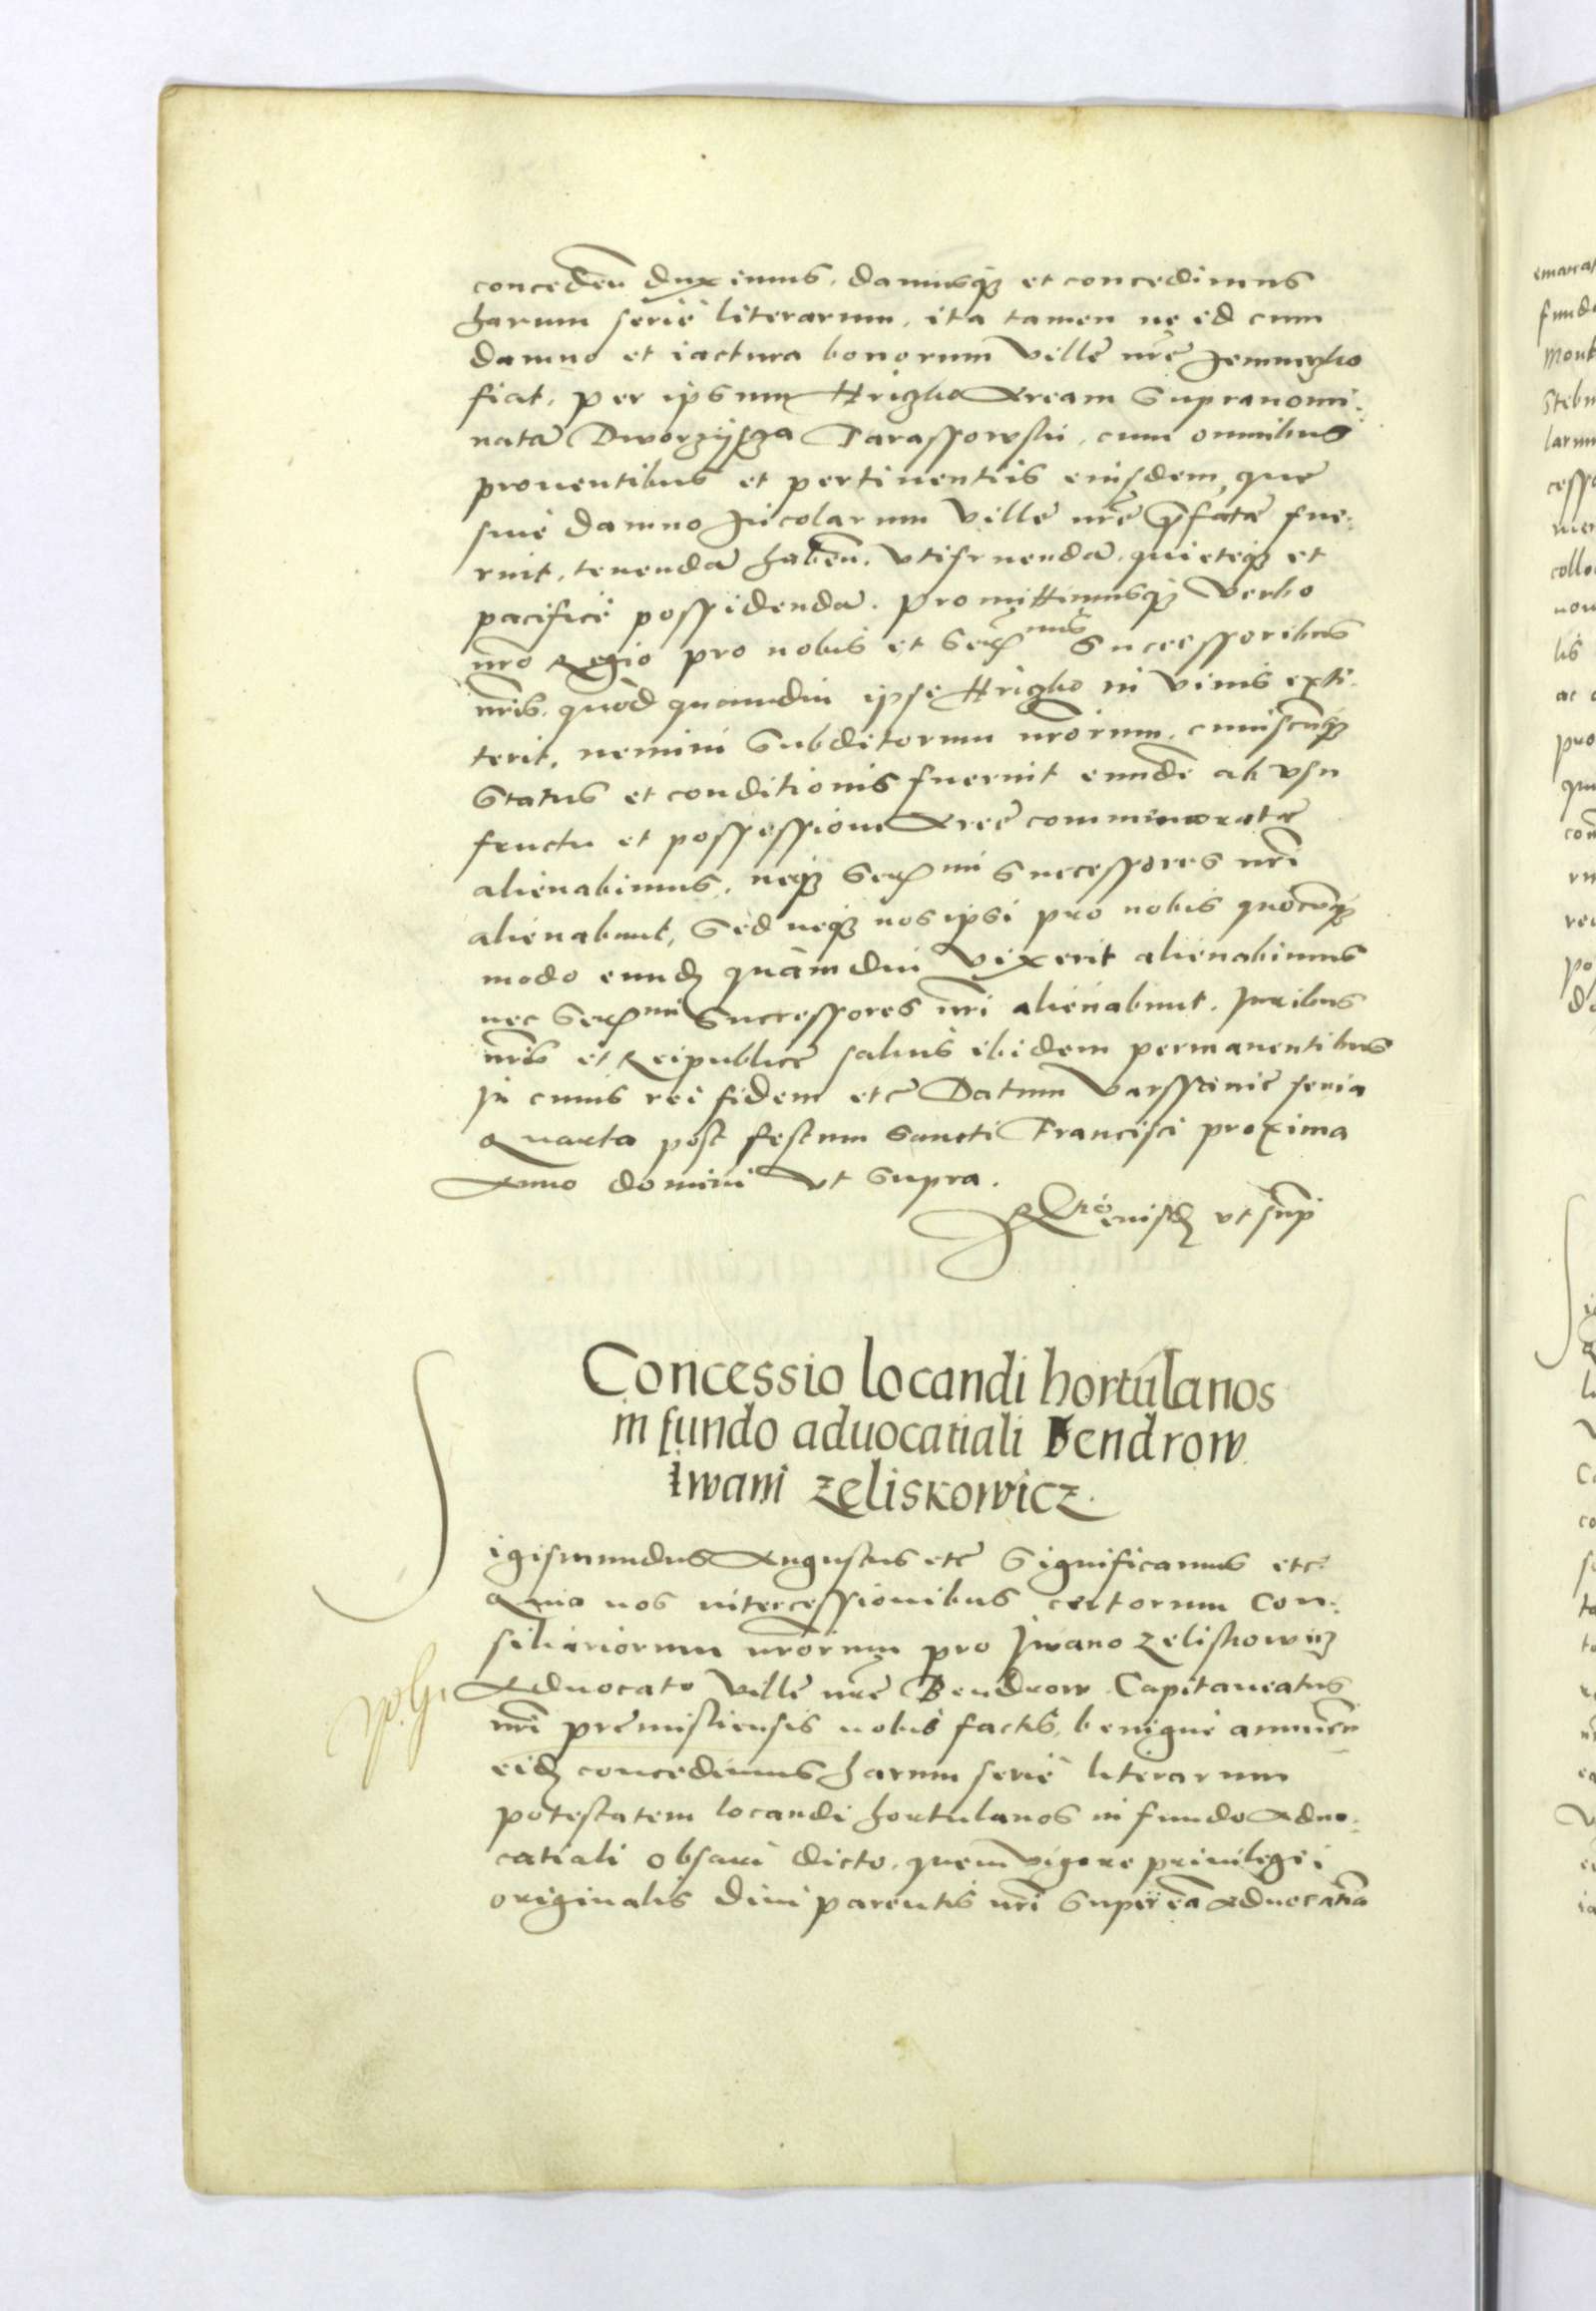 conceden̄ duximus, damusq₃ et concedimus
harum serie literarum, ita tamen ne id cum
damno et iactura bonorum ville nr̄e
fiat, per ipsum Hrizko Aream supranomi:
natā Dworzyscza Tarassowski, cum omnibus
prouentibus et pertinentiis eiusdem, que
sine damno Incolarum ville nr̄e p̄fatæ fue:
rint, tenendā haben̄. vtifruendā, quieteq₃ et
pacifice possidendā. Promittimusq₃ verbo
nr̄o Regio pro nobis et Ser^mis Successoribus
nr̄is, quòd quamdiu ipse Hrizko in viuis exti:
terit, nemini Subditorum nr̄orum, cuiuscunq₃
Status et conditionis fuerint eunde ab vsu
fructu et possessione Areæ commemoratæ
alienabimus, neq₃ Ser^mi successores nr̄i
alienabunt, Sed neq₃ nos ipsi pro nobis quocūq₃
modo eund₃ quàmdiu vixerit alienabimus
nec Ser^mi Successores nr̄i alienabunt. Juribus
nr̄is et Reipublice saluis ibidem permanentibus
In cuius rei fidem etc̄ Datum Varssauie feria
Quarta post festum Sancti Francisci proxima
Anno domini vt supra.
eiusd₃ vt sup̄
Concessio locandi hortulanos
in fundo aduocatiali Bendrow
Iwani Zeliskowicz.
Sigismundus Augustus etc̄ Significamus etc̄
Quia nos intercessionibus certorum Con:
siliariorum nr̄orum pro Iwano Zeliskowicz
Aduocato ville nr̄e Bendrow Capitaneatus
nr̄i premisliensis nobis factis, benigne annuen̄
eid₃ concedimus harum serie literarum
potestatem locandi hortulanos in fundo Aduo:
catiali obsari dicto, quem vigore priuilegii
originalis diui parentis nr̄i super eā Aduocatiā